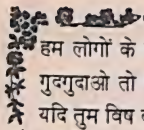 हम लोगों के
गुदगुदाओ तो
यदि तुम विष